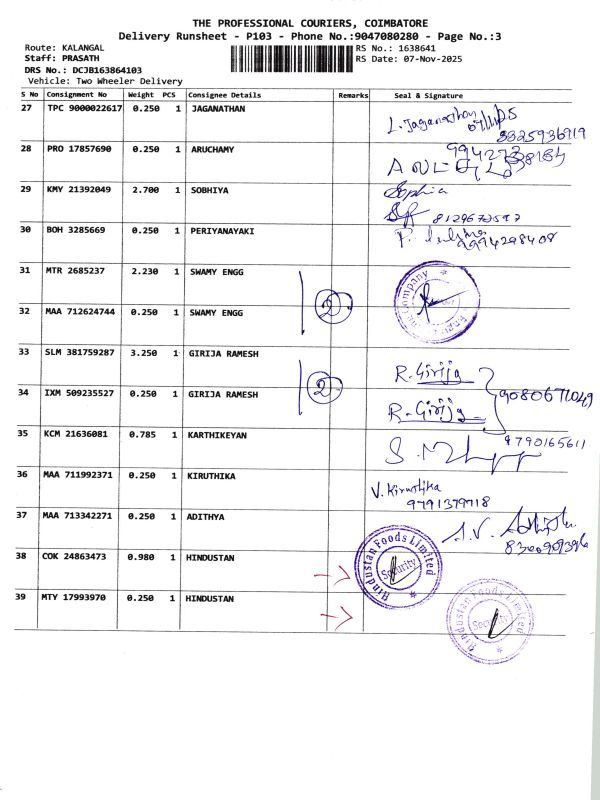 THE PROFESSIONAL COURIERS, COIMBATORE
Delivery Runsheet - P103 - Phone No.:9047080280 - Page No.:3
Route: KALANGAL
RS No.: 1638641
Staff: PRASATH
RS Date: 07-Nov-2025
DRS No.: DCJB163864103
Vehicle: Two Wheeler Delivery
S No Consignment No Weight PCS Consignee Details Remarks Seal & Signature
27 TPC 9000022617 0.250 1 JAGANATHAN
L. Jaganathan
8825936919
28 PRO 17857690 0.250 1 ARUCHAMY
29 KMY 21392049 2.700 1 SOBHIYA Sophia
8129672597
30 BOH 3285669 0.250 1 PERIYANAYAKI
9994298408
31 MTR 2685237 2.230 1 SWAMY ENGG
2
32 MAA 712624744 0.250 1 SWAMY ENGG
33 SLM 381759287 3.250 1 GIRIJA RAMESH R. Girija
2
34 IXM 509235527 0.250 1 GIRIJA RAMESH R. Girija 9080671049
35 KCM 21636081 0.785 1 KARTHIKEYAN 9790165611
36 MAA 711992371 0.250 1 KIRUTHIKA V. Kiruthika
9791379718
37 MAA 713342271 0.250 1 ADITHYA
38 COK 24863473 0.980 1 HINDUSTAN Hindustan Foods Limited Security
39 MTY 17993970 0.250 1 HINDUSTAN Hindustan Foods Limited Security